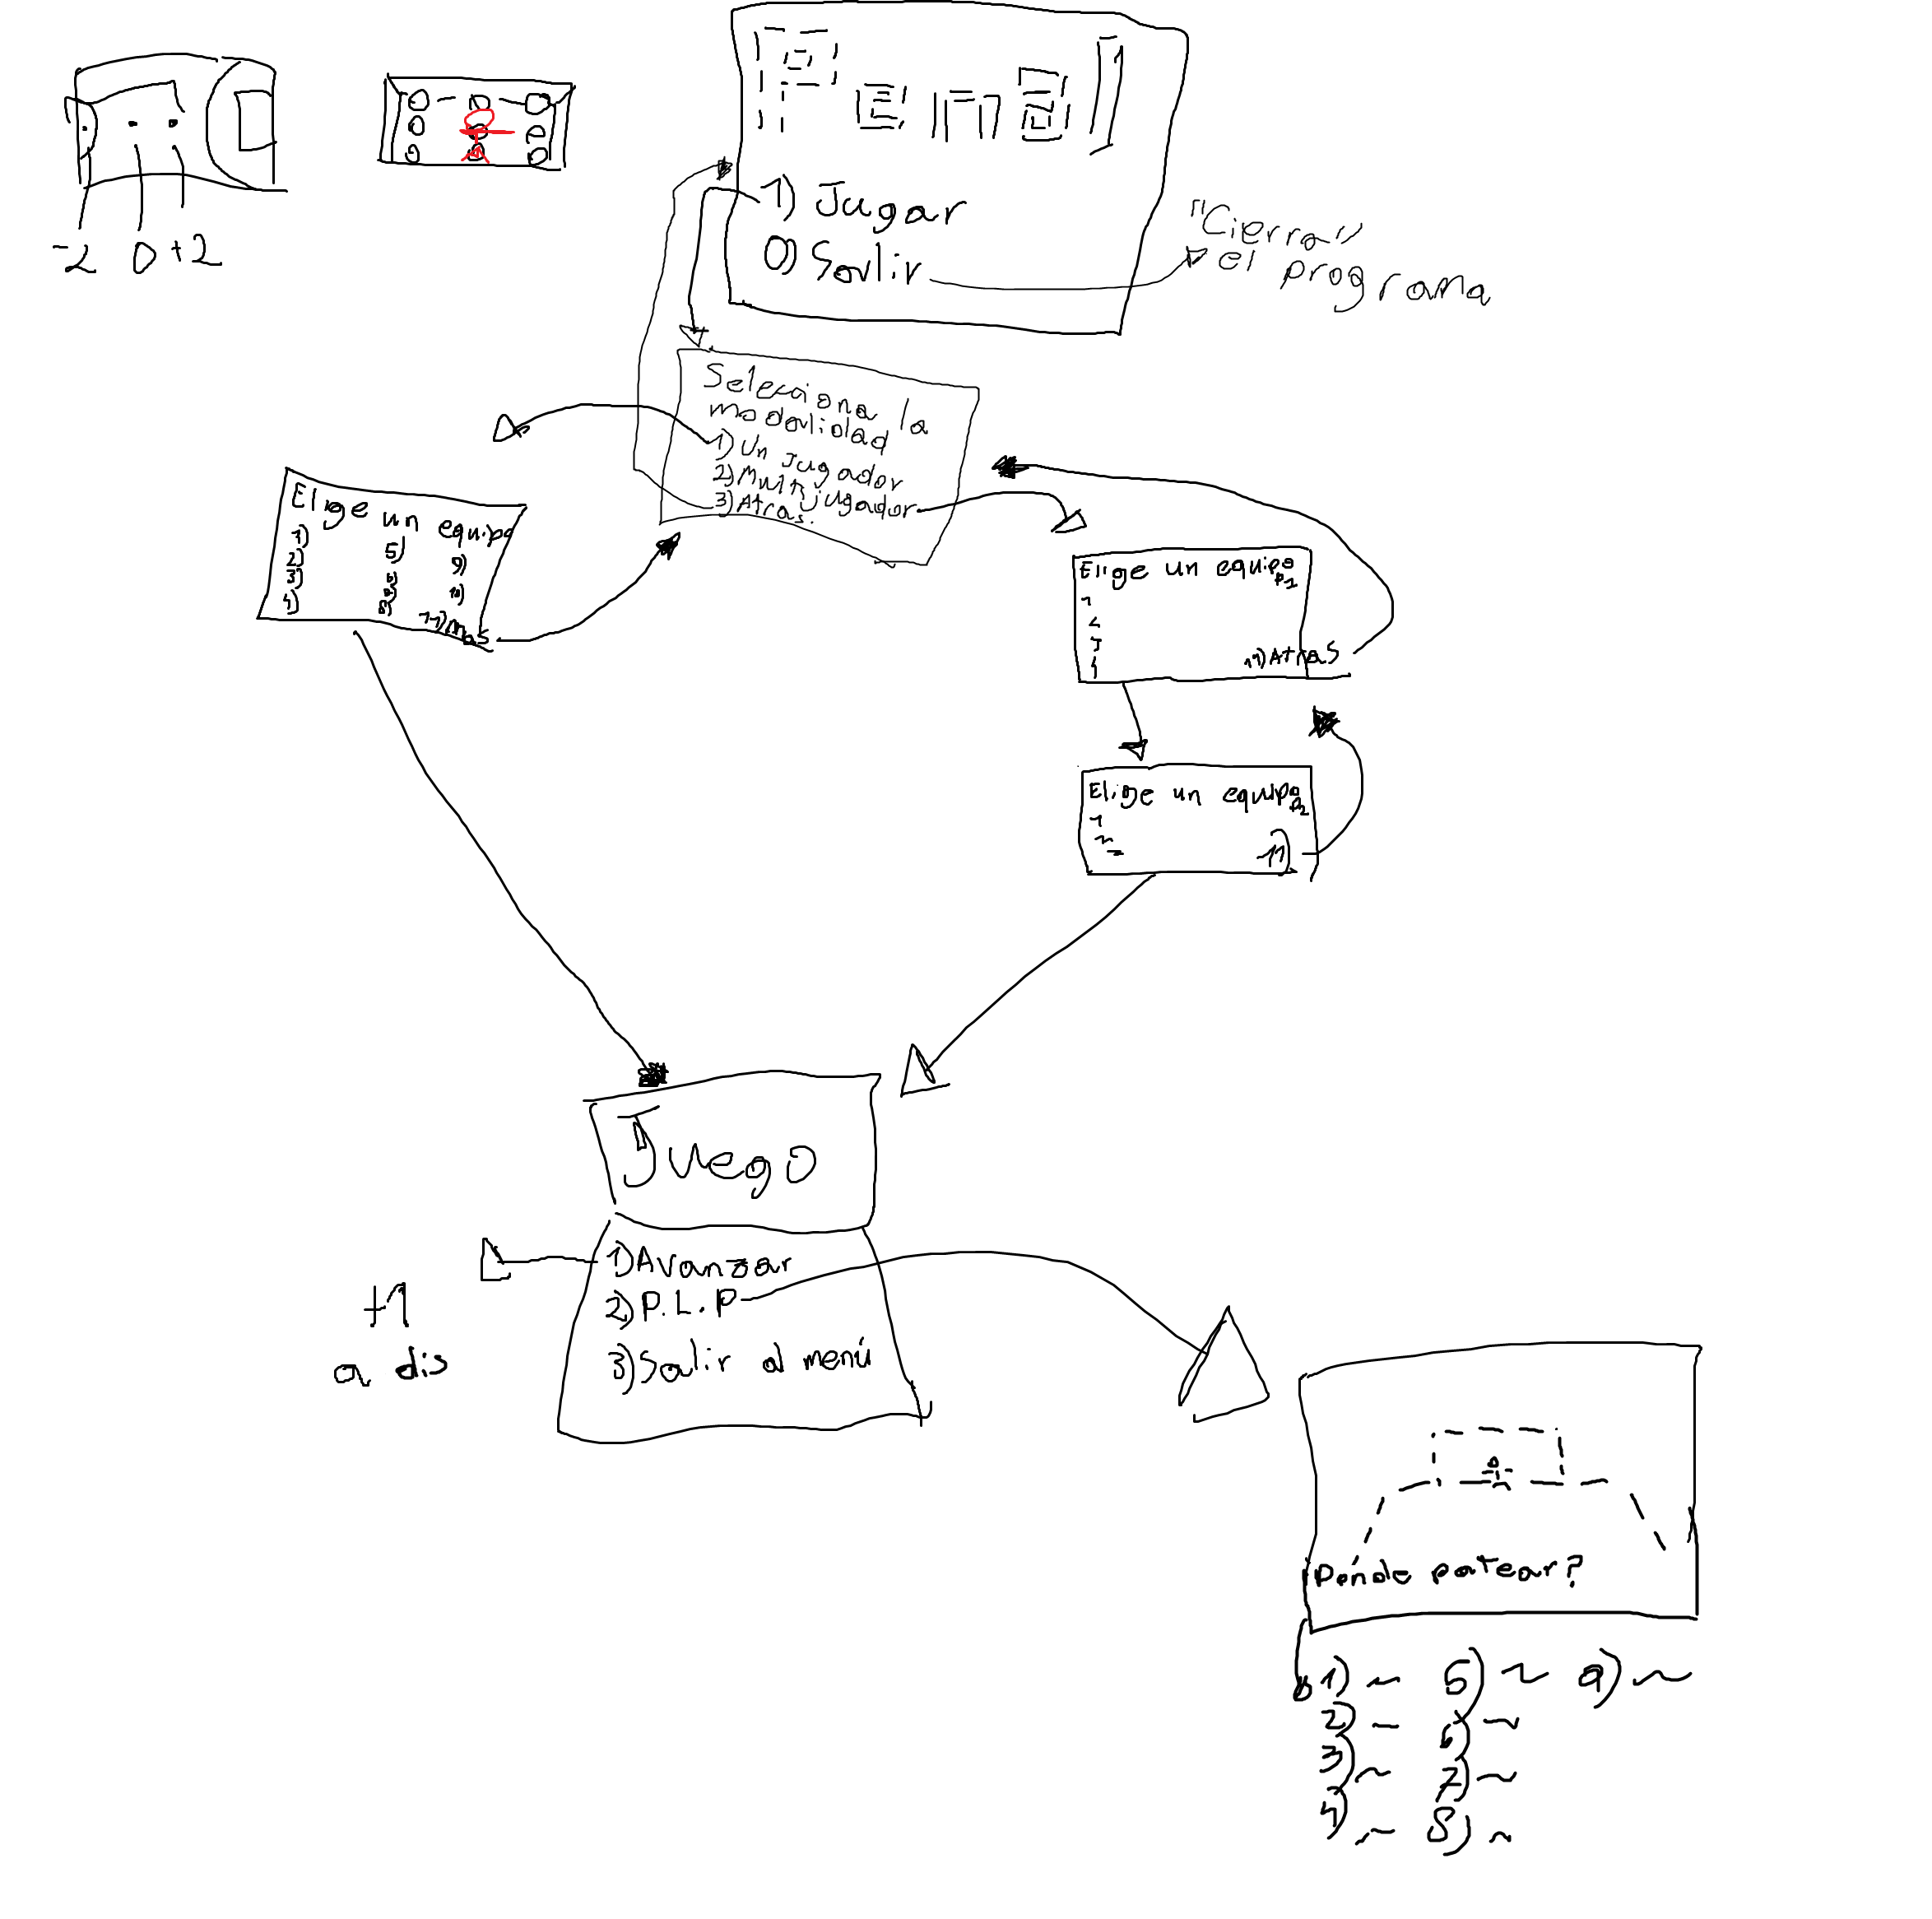 -2 0 +2
Penal
1) Jugar
0) Salir
"Cierra"
el programa
Selecciona la
modalidad
1) Un Jugador
2) Multijugador
3) Atras.
Elige un equipo
1)
2)
3)
4)
5)
6)
8)
9)
10)
Elige un equipo
P1
1
2
3
4
11) Atras
Elige un equipo
P2
1
2
11)
Juego
1) Avanzar
2) P.L.P
3) Salir al menú
+1
a dis
¿Dónde patear?
1) ~ 5) ~ 9) ~
2) ~ 6) ~
3) ~ 7) ~
4) ~ 8) ~